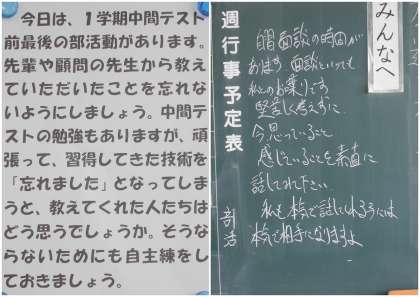 今日は、1学期中間テスト
前最後の部活動があります。
先輩や顧問の先生から教え
ていただいたことを忘れな
いようにしましょう。中間テ
ストの勉強もありますが、頑
張って、習得してきた技術を
「忘れました」となってしま
うと、教えてくれた人たちは
どう思うでしょうか。そうな
らないためにも自主練をし
ておきましょう。
みんなへ
週行事予定表
個人面談の時間が
あります 面談といっても
私とのお喋りです
堅苦しく考えずに
今思っていること
感じていることを素直に
話してくれ下さい
私も本気で話してくれる方には
本気で相手になりますよ
部活